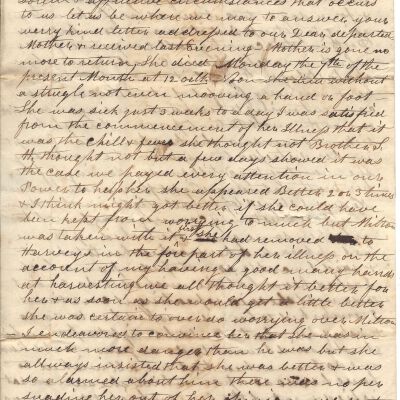 solemn & afflictive circumstances that occurs
to us let us be where we may to answer your
verry kind letter addressed to our Dear departed
Mother & received last Evening Mother is gone no
more to return She died Monday the 7th of the
present Month at 12 oclk Noon She died without
a strugle not even mooving a hand or foot
She was sick just 3 weeks to a day I was satisfied
from the commencement of her Illness that it
was the chill & fever she thought not Brother
thought not but a few days showed it was
the case we payed every attention in our
Power to help her she appeared Better 2 or 3 times
& I think might got better if she could have
been kept from worrying to much but Milton
was taken with it & she had removed to
Harveys in the fore part of her illness on the
account of my having a good many hands
at harvesting we all thought it better for
her & as soon as she would get a little better
she was certain to over do worrying over Milton
I endeavored to convince her that She was in
much more danger than he was but she
allways insisted that she was better & was
so alarmed about him there was no per
suading her out of her